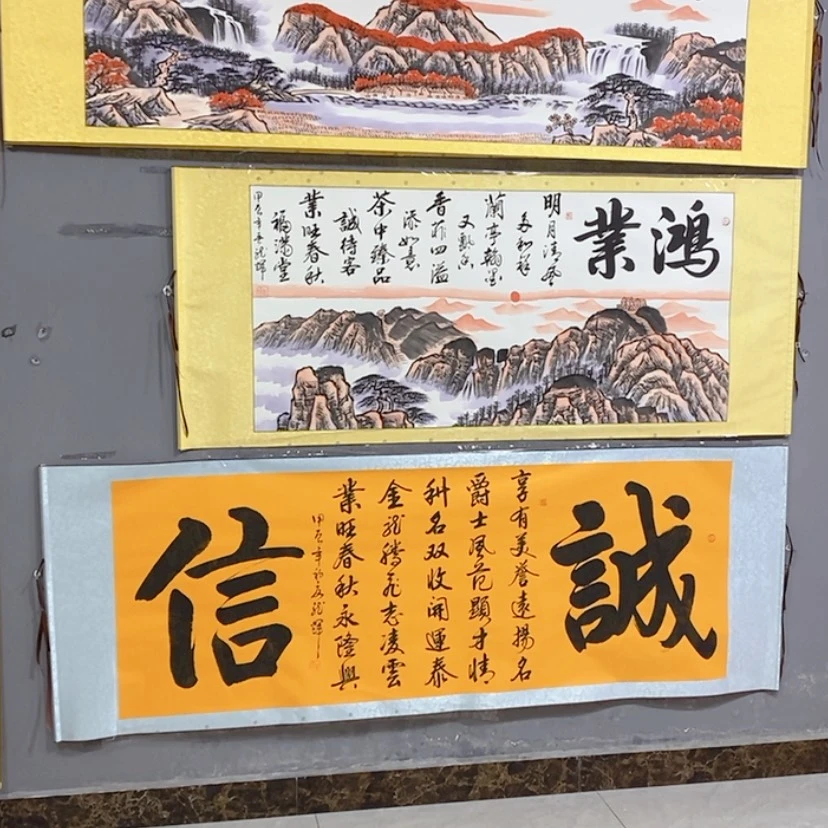 鴻業
明月清風
多和祥
蘭亭翰墨
又飄香
香菲四溢
添如意
茶中臻品
誠待客
業旺春秋
福滿堂
甲辰年
誠
享有美誉遠揚名
爵士風范顯才情
利名双收開運泰
金龙騰飞志凌雲
業旺春秋永隆興
甲辰年
信